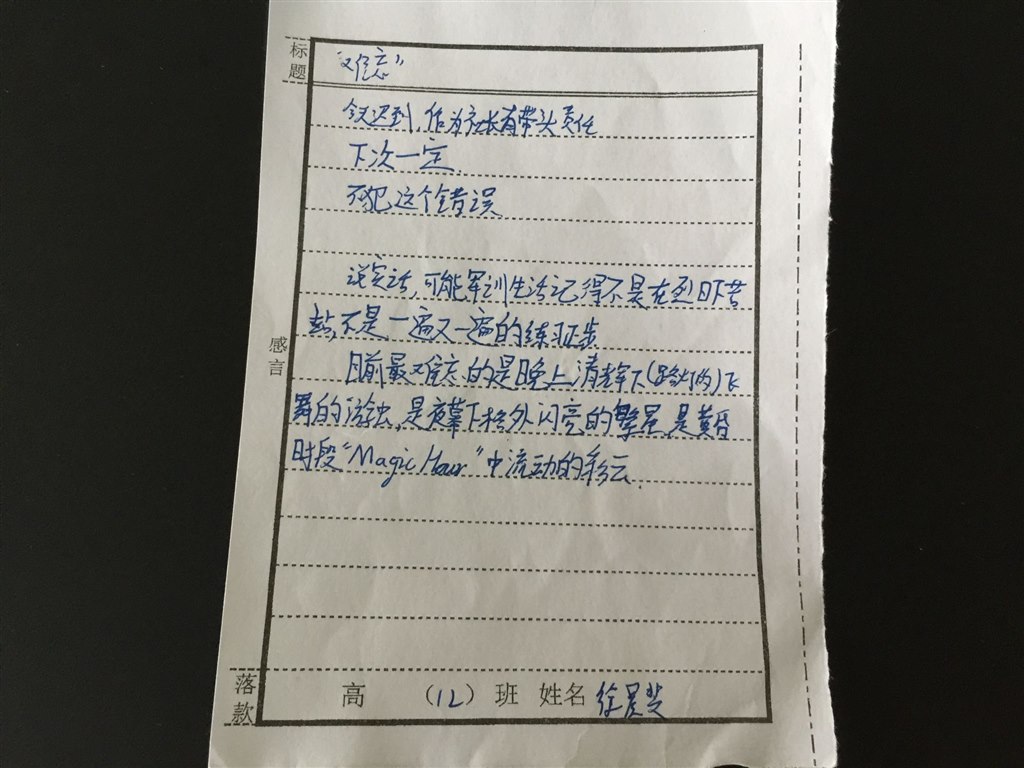 标题
"难忘"
今天迟到,作为社长有带头责任
下次一定
不犯这个错误
说实话,可能军训生活记得不是在烈日下苦
站,不是一遍又一遍的练习正步
目前最难忘的是晚上清辉下(路灯的)飞
舞的游虫,是夜幕下格外闪亮的繁星,是黄昏
时段"Magic Hour"中流动的彩云.
感言
落款
高 (12) 班 姓名 徐